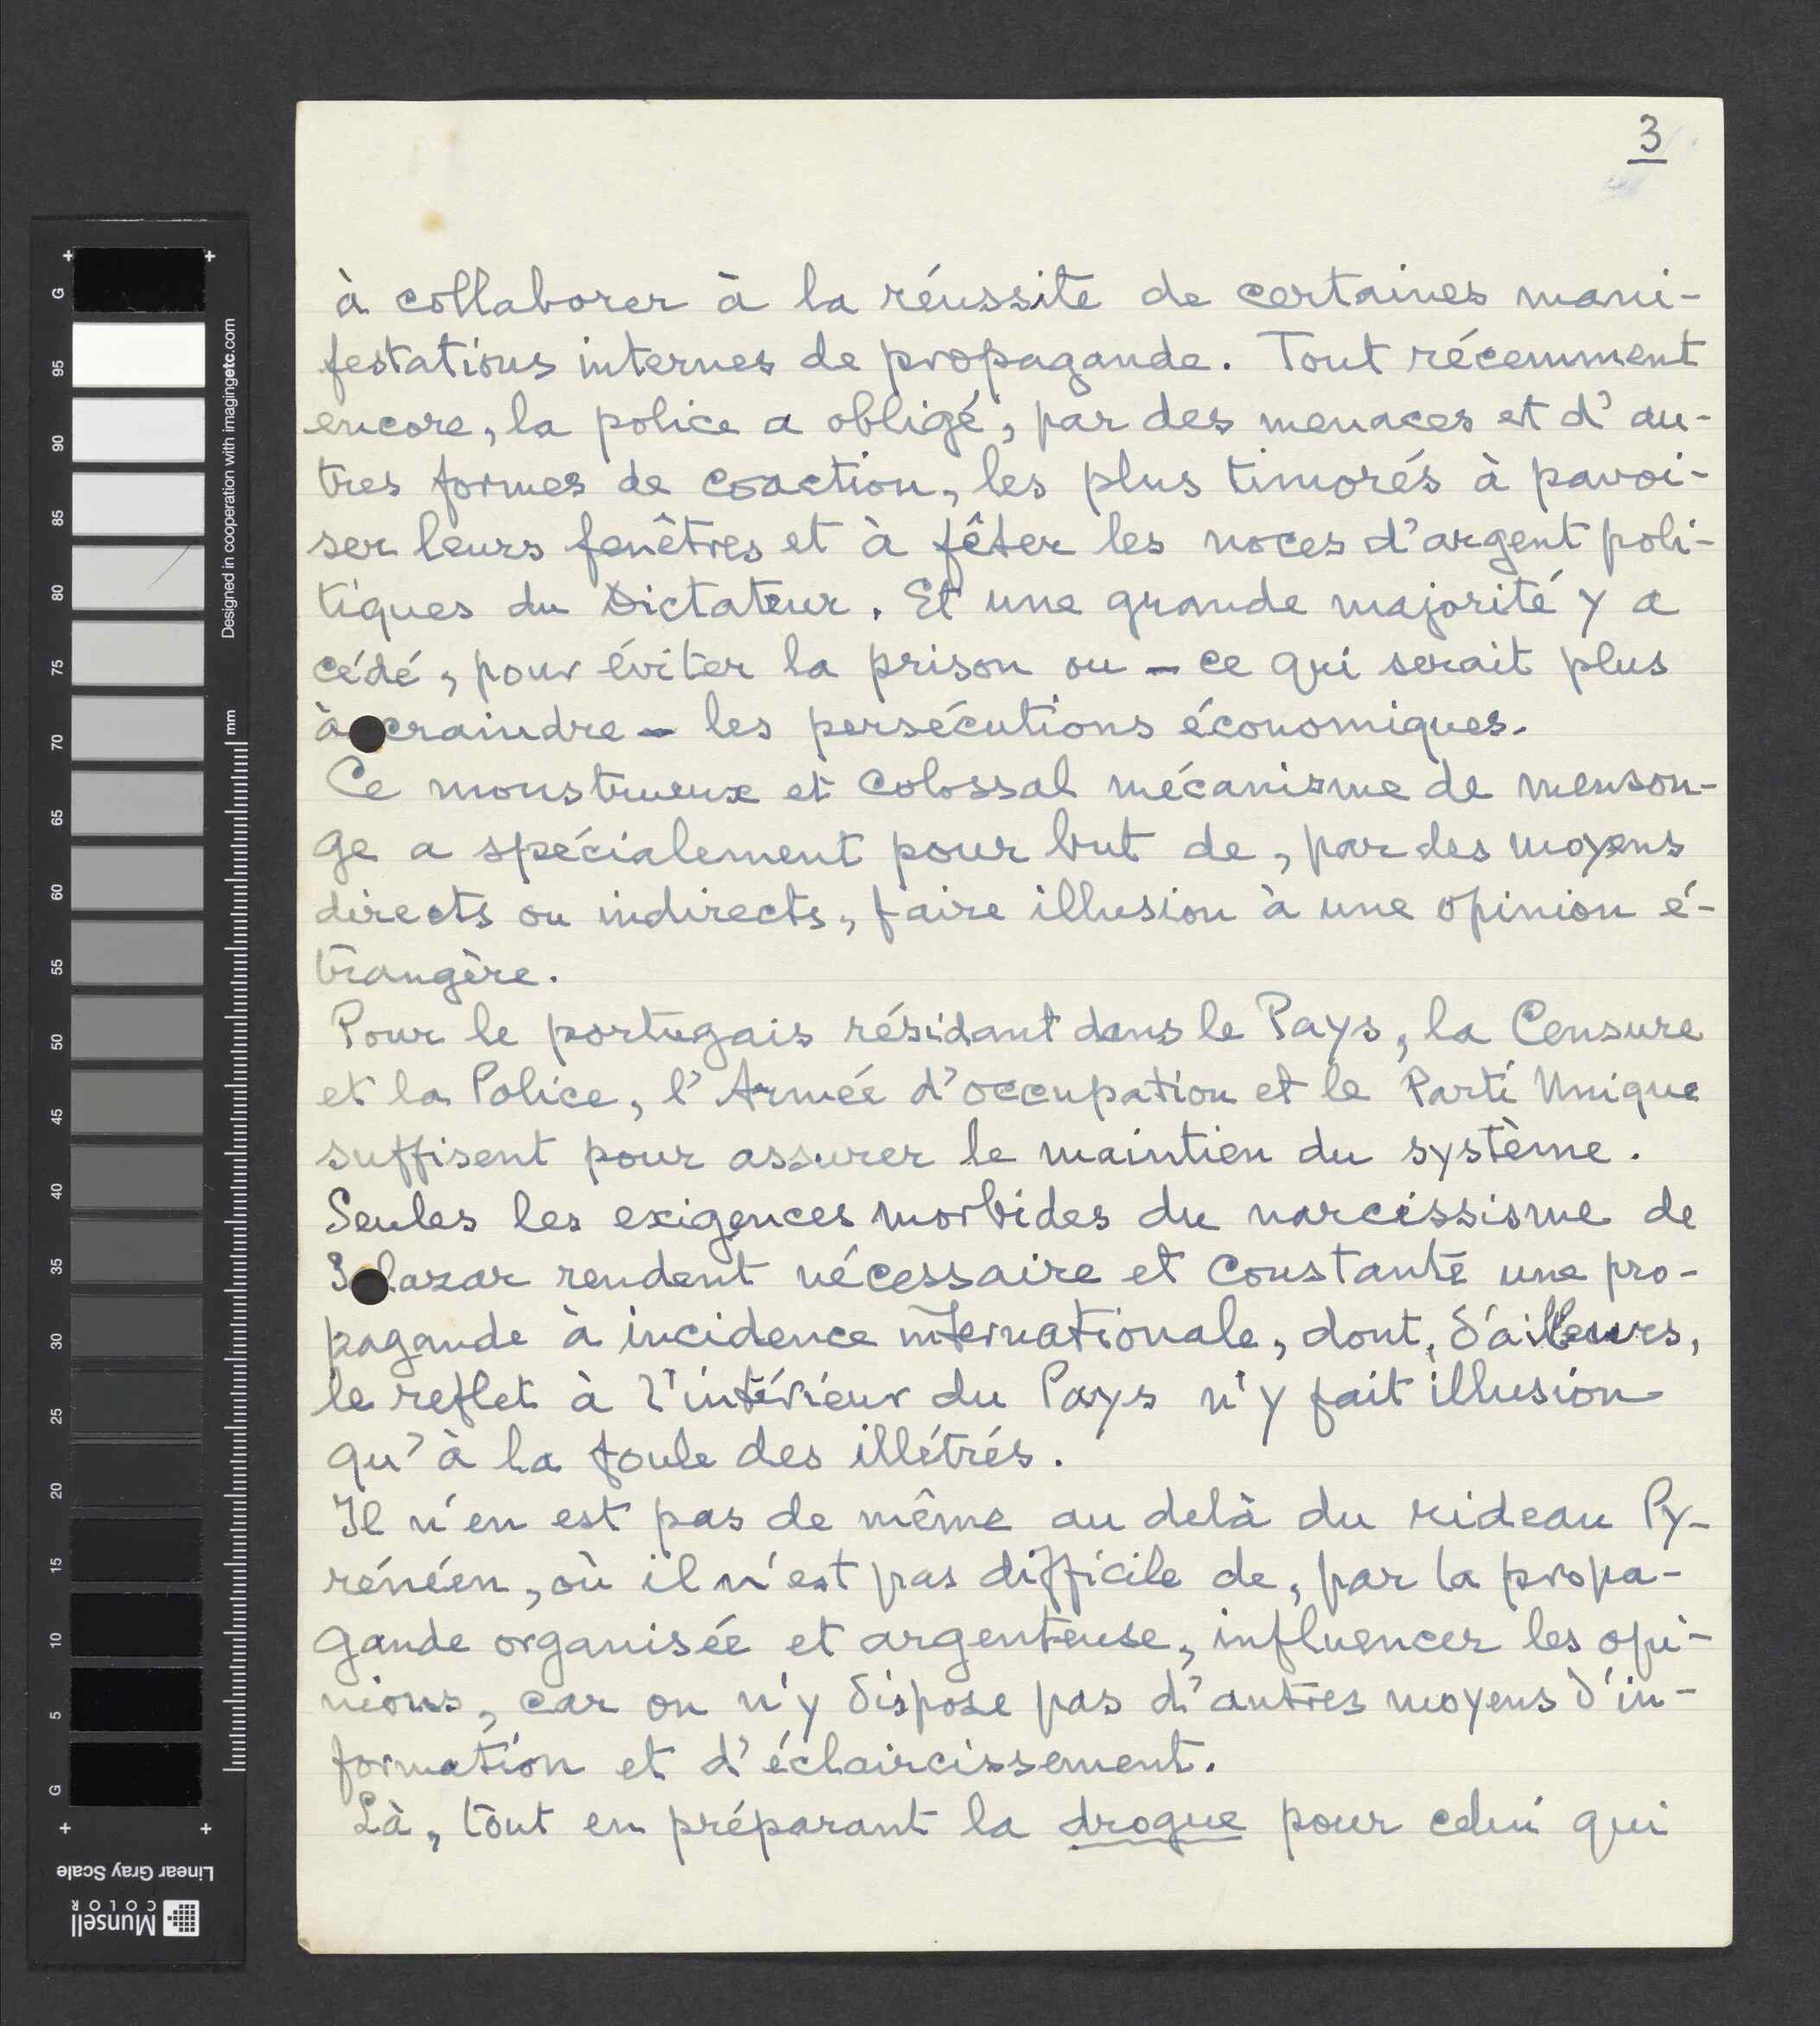 3
à collaborer à la réussite de certaines mani-
festations internes de propagande. Tout récemment
encore, la police a obligé, par des menaces et d'au-
tres formes de coaction, les plus timorés à pavoi-
ser leurs fenêtres et à fêter les noces d'argent poli-
tiques du Dictateur. Et une grande majorité y a
cédé, pour éviter la prison ou - ce qui serait plus
à craindre - les persécutions économiques.
Ce monstrueux et colossal mécanisme de menson-
ge a spécialement pour but de, par des moyens
directs ou indirects, faire illusion à une opinion é-
trangère.
Pour le portugais résidant dans le Pays, la Censure
et la Police, l'Armée d'occupation et le Parti Unique
suffisent pour assurer le maintien du système.
Seules les exigences morbides du narcissisme de
Salazar rendent nécessaire et constante une pro-
pagande à incidence internationale, dont, d'ailleurs,
le reflet à l'intérieur du Pays n'y fait illusion
qu'à la foule des illétrés.
Il n'en est pas de même au delà du rideau Py-
rénéen, où il n'est pas difficile de, par la propa-
gande organisée et argenteuse, influencer les opi-
nions, car on n'y dispose pas d'autres moyens d'in-
formation et d'éclaircissement.
Là, tout en préparant la drogue pour celui qui
G
95
90
85
80
75
70
65
60
55
50
45
40
35
30
25
20
15
10
5
G
Designed in cooperation with imagingetc.com
mm
Linear Gray Scale
Munsell
COLOR